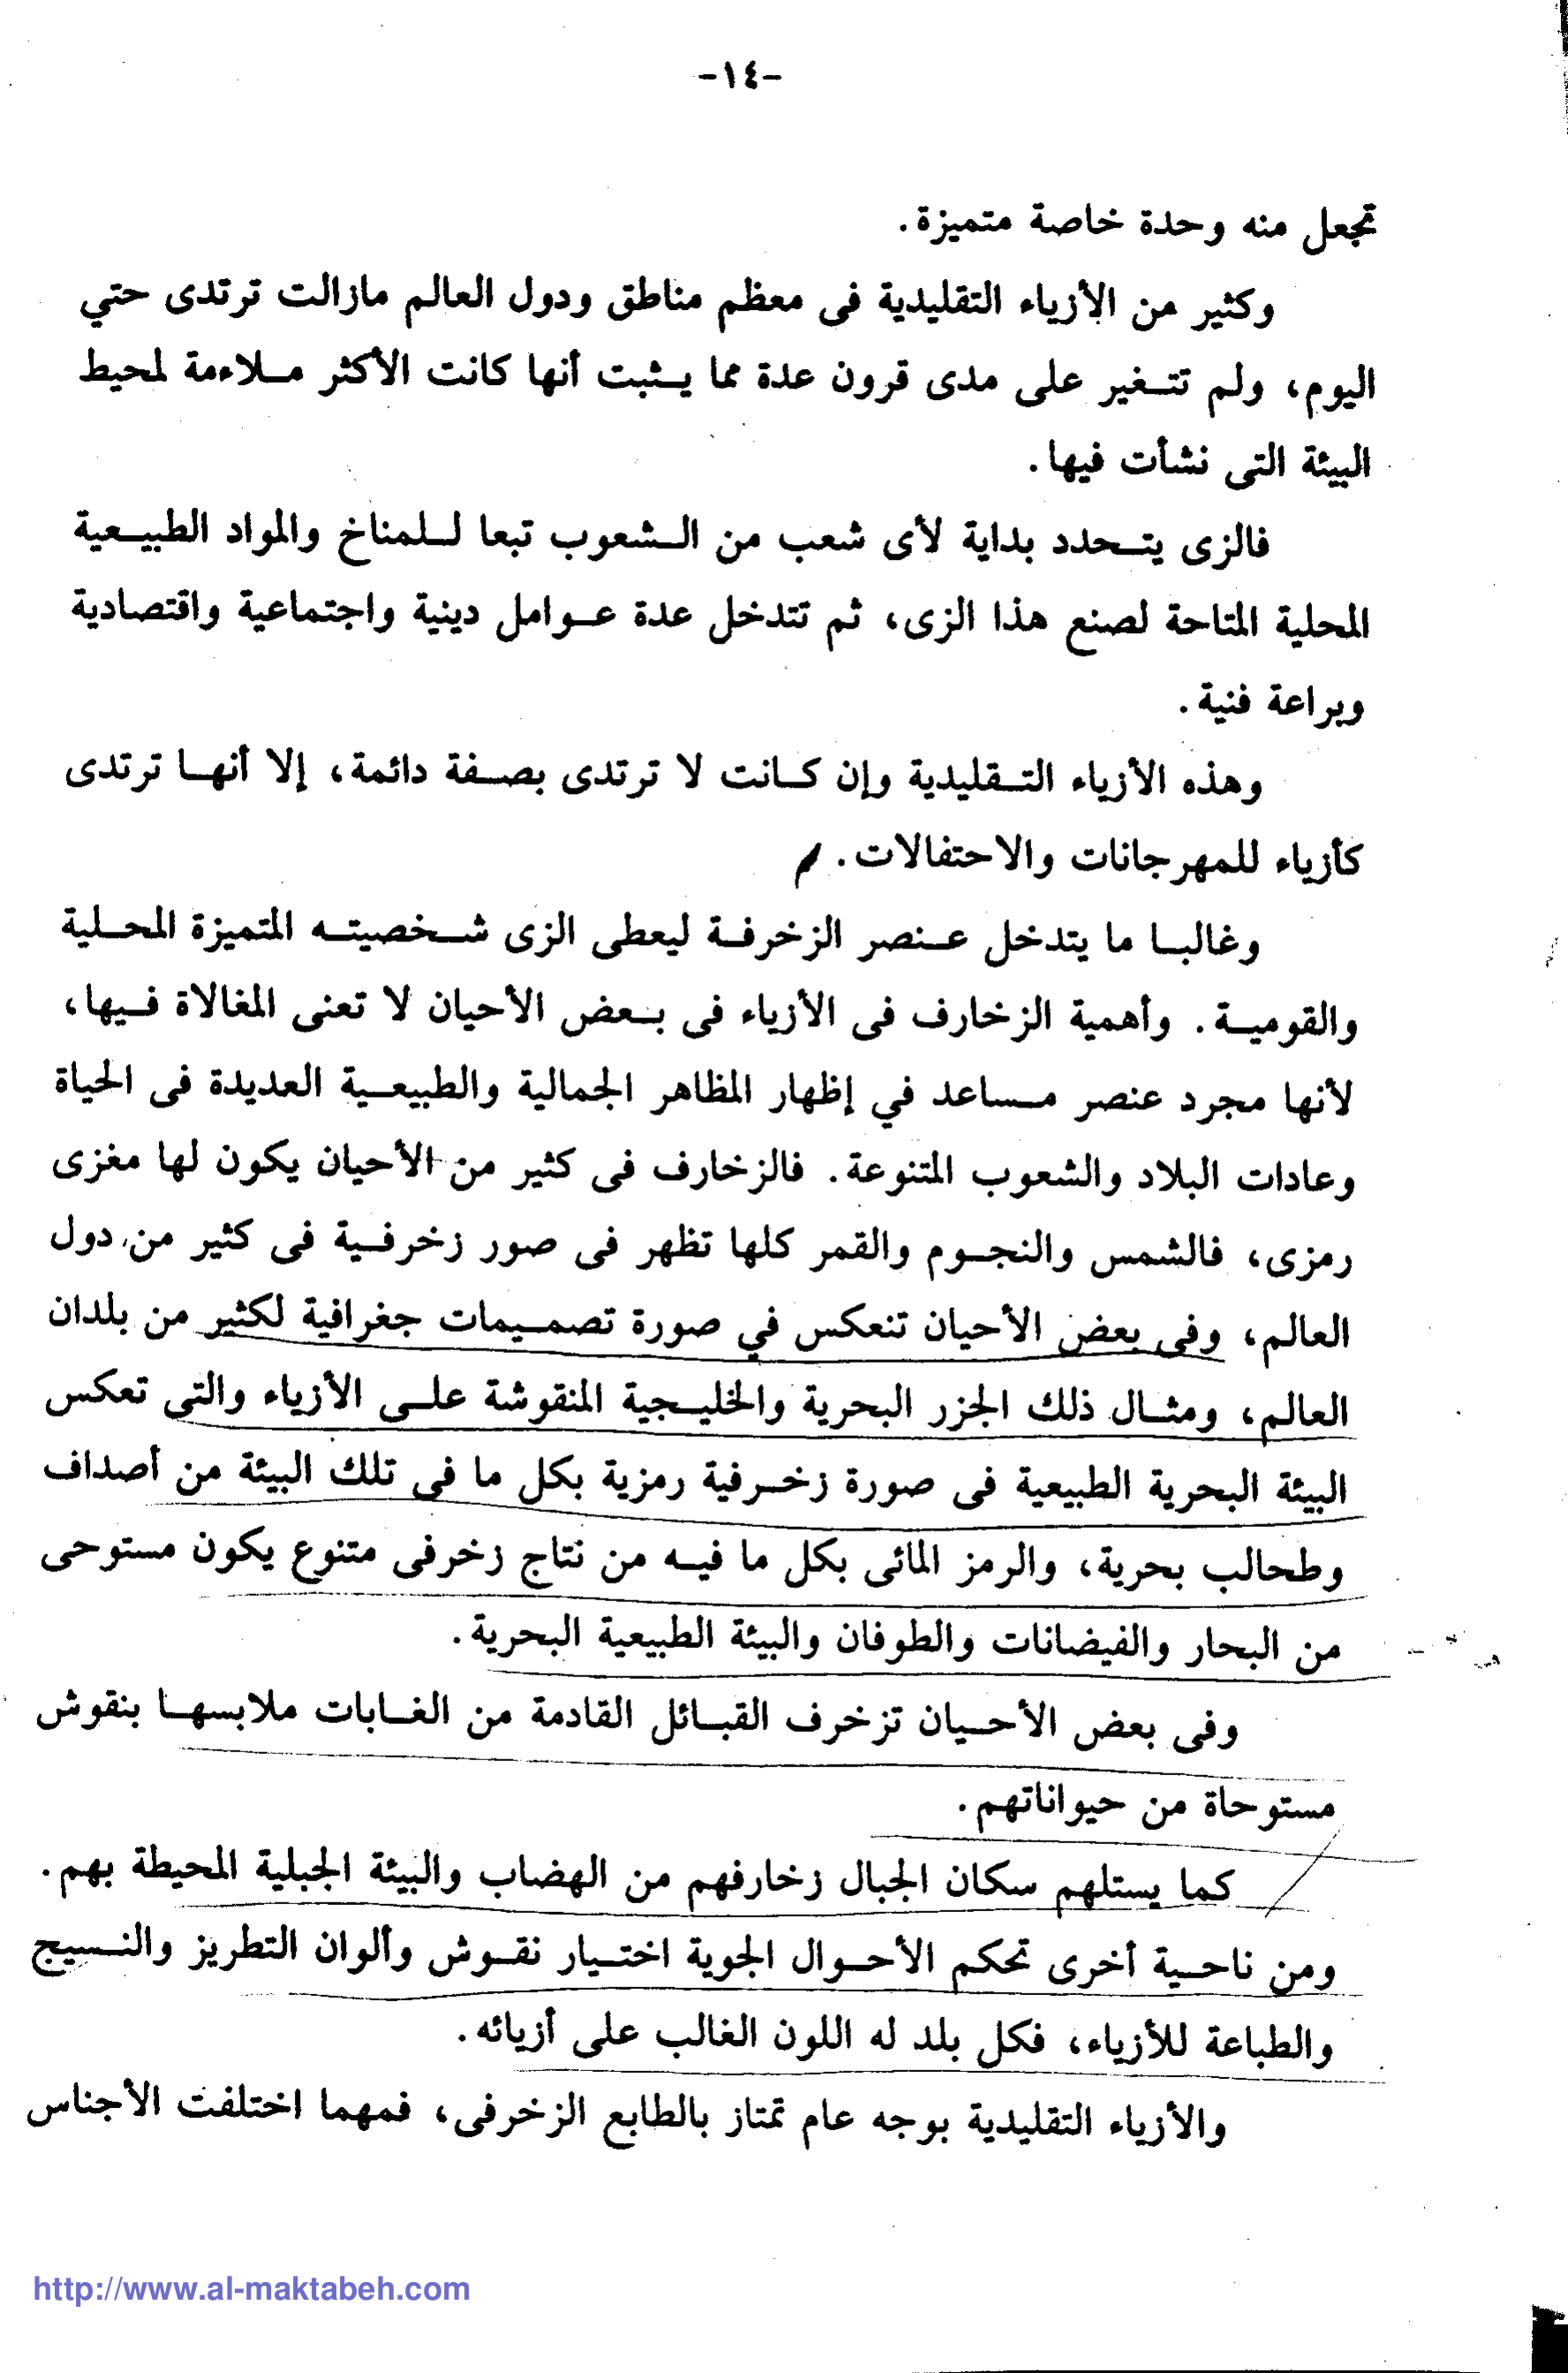 -١٤-
تجعل منه وحدة خاصة متميزة.
وكثير من الأزياء التقليدية فى معظم مناطق ودول العالم مازالت ترتدى حتي
اليوم، ولم تتغير على مدى قرون عدة مما يثبت أنها كانت الأكثر ملاءمة لمحيط
البيئة التى نشأت فيها.
فالزى يتحدد بداية لأى شعب من الشعوب تبعا للمناخ والمواد الطبيعية
المحلية المتاحة لصنع هذا الزى، ثم تتدخل عدة عوامل دينية واجتماعية واقتصادية
وبراعة فنية.
وهذه الأزياء التقليدية وإن كانت لا ترتدى بصفة دائمة، إلا أنها ترتدى
كأزياء للمهرجانات والاحتفالات.
وغالبا ما يتدخل عنصر الزخرفة ليعطى الزى شخصيته المتميزة المحلية
والقومية. وأهمية الزخارف فى الأزياء فى بعض الأحيان لا تعنى المغالاة فيها،
لأنها مجرد عنصر مساعد في إظهار المظاهر الجمالية والطبيعية العديدة فى الحياة
وعادات البلاد والشعوب المتنوعة. فالزخارف فى كثير من الأحيان يكون لها مغزى
رمزى، فالشمس والنجوم والقمر كلها تظهر فى صور زخرفية فى كثير من دول
العالم، وفى بعض الأحيان تنعكس في صورة تصميمات جغرافية لكثير من بلدان
العالم، ومثال ذلك الجزر البحرية والخليجية المنقوشة على الأزياء والتى تعكس
البيئة البحرية الطبيعية فى صورة زخرفية رمزية بكل ما فى تلك البيئة من أصداف
وطحالب بحرية، والرمز المائى بكل ما فيه من نتاج زخرفى متنوع يكون مستوحى
من البحار والفيضانات والطوفان والبيئة الطبيعية البحرية.
وفى بعض الأحيان تزخرف القبائل القادمة من الغابات ملابسها بنقوش
مستوحاة من حيواناتهم.
كما يستلهم سكان الجبال زخارفهم من الهضاب والبيئة الجبلية المحيطة بهم.
ومن ناحية أخرى تحكم الأحوال الجوية اختيار نقوش وألوان التطريز والنسيج
والطباعة للأزياء، فكل بلد له اللون الغالب على أزيائه.
والأزياء التقليدية بوجه عام تمتاز بالطابع الزخرفى، فمهما اختلفت الأجناس
http://www.al-maktabeh.com